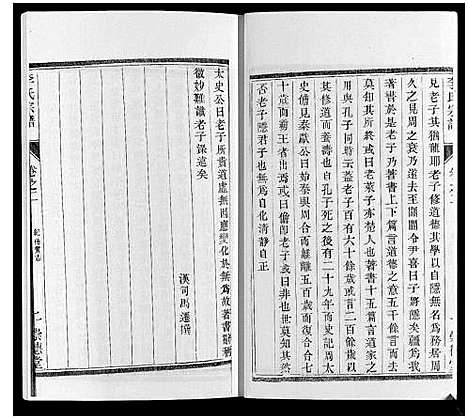 見老子其猶龍耶老子修道德其學以自隱無名爲務居周
久之見周之衰乃遂去至關關令尹喜曰子將隱矣疆爲我
著書於是老子乃著書上下篇言道德之意五千餘言而去
莫知其所終或曰老萊子亦楚人也著書十五篇言道家之
用與孔子同時云蓋老子百有六十餘歲或言二百餘歲以
其修道而養壽也自孔子死之後百二十九年而史記周太
史儋見秦獻公曰始秦與周合而離離五百歲而復合合七
十歲而霸王者出焉或曰儋即老子或曰非也世莫知其然
否老子隱君子也無爲自化清靜自正
太史公曰老子所貴道虛無因應變化於無爲故著書辭稱
微妙難識老子深遠矣
漢司馬遷撰
李氏宗譜
卷之二
七
崇德堂